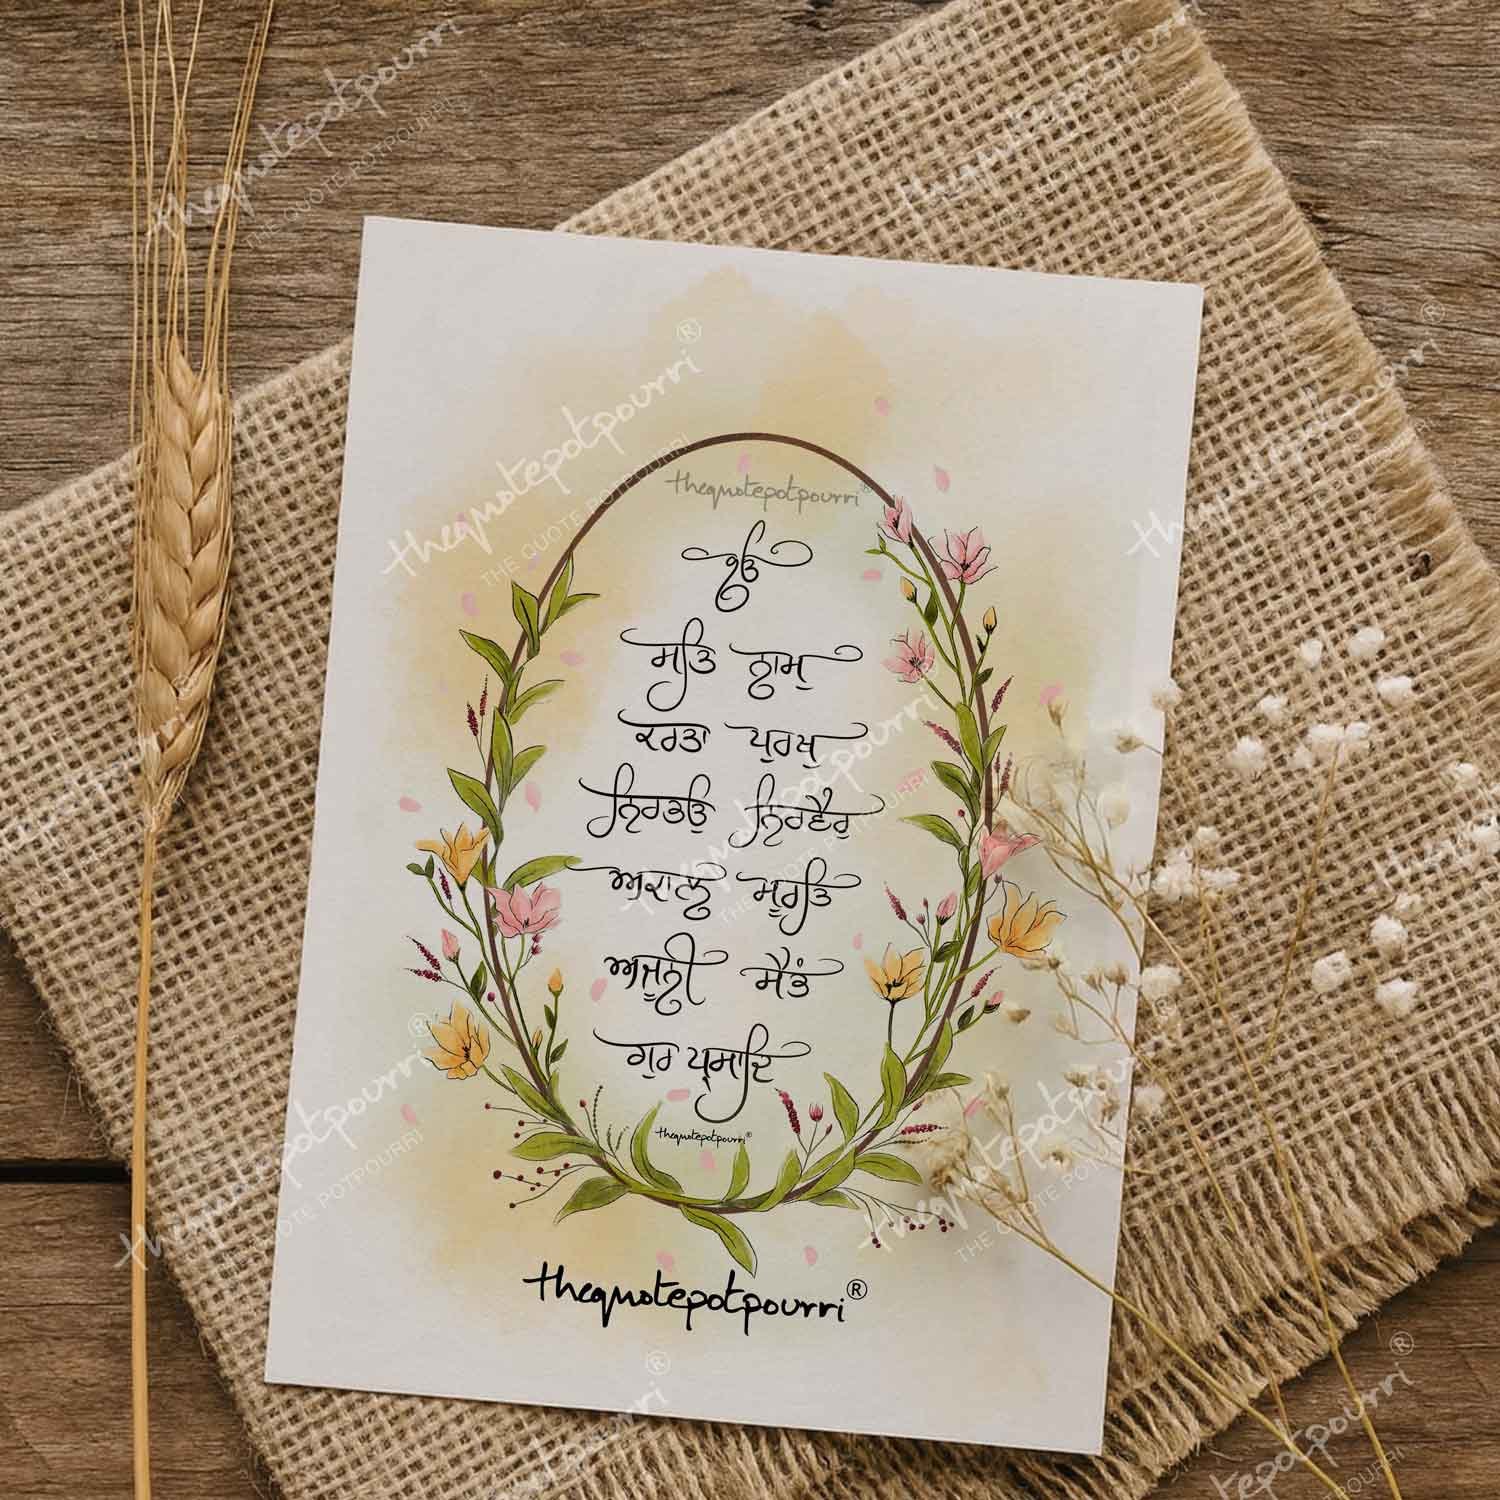 thequotepotpourri®
ੴ
ਸਤਿ ਨਾਮੁ
ਕਰਤਾ ਪੁਰਖੁ
ਨਿਰਭਉ ਨਿਰਵੈਰੁ
ਅਕਾਲ ਮੂਰਤਿ
ਅਜੂਨੀ ਸੈਭੰ
ਗੁਰ ਪ੍ਰਸਾਦਿ
thequotepotpourri®
thequotepotpourri®
thequotepotpourri®
THE QUOTE POTPOURRI